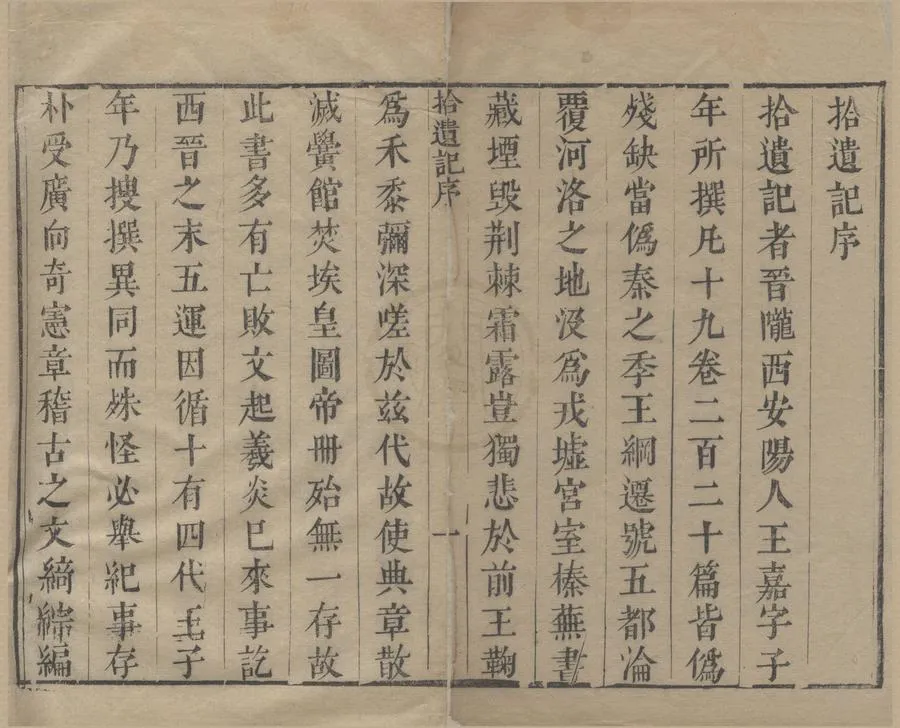 拾遺記序
拾遺記者晉隴西安陽人王嘉字子
年所撰凡十九卷二百二十篇皆僞
殘缺當僞秦之季王綱遷號五都淪
覆河洛之地沒爲戎墟宮室榛蕪書
藏堙毀荆棘霜露豈獨悲於前王鞠
拾遺記序 一
爲禾黍彌深嗟於茲代故使典章散
滅黌館焚埃皇圖帝冊殆無一存故
此書多有亡敗文起羲炎已來事訖
西晉之末五運因循十有四代王子
年乃搜撰異同而殊怪必舉紀事存
朴受廣向奇憲章稽古之文綺綜編